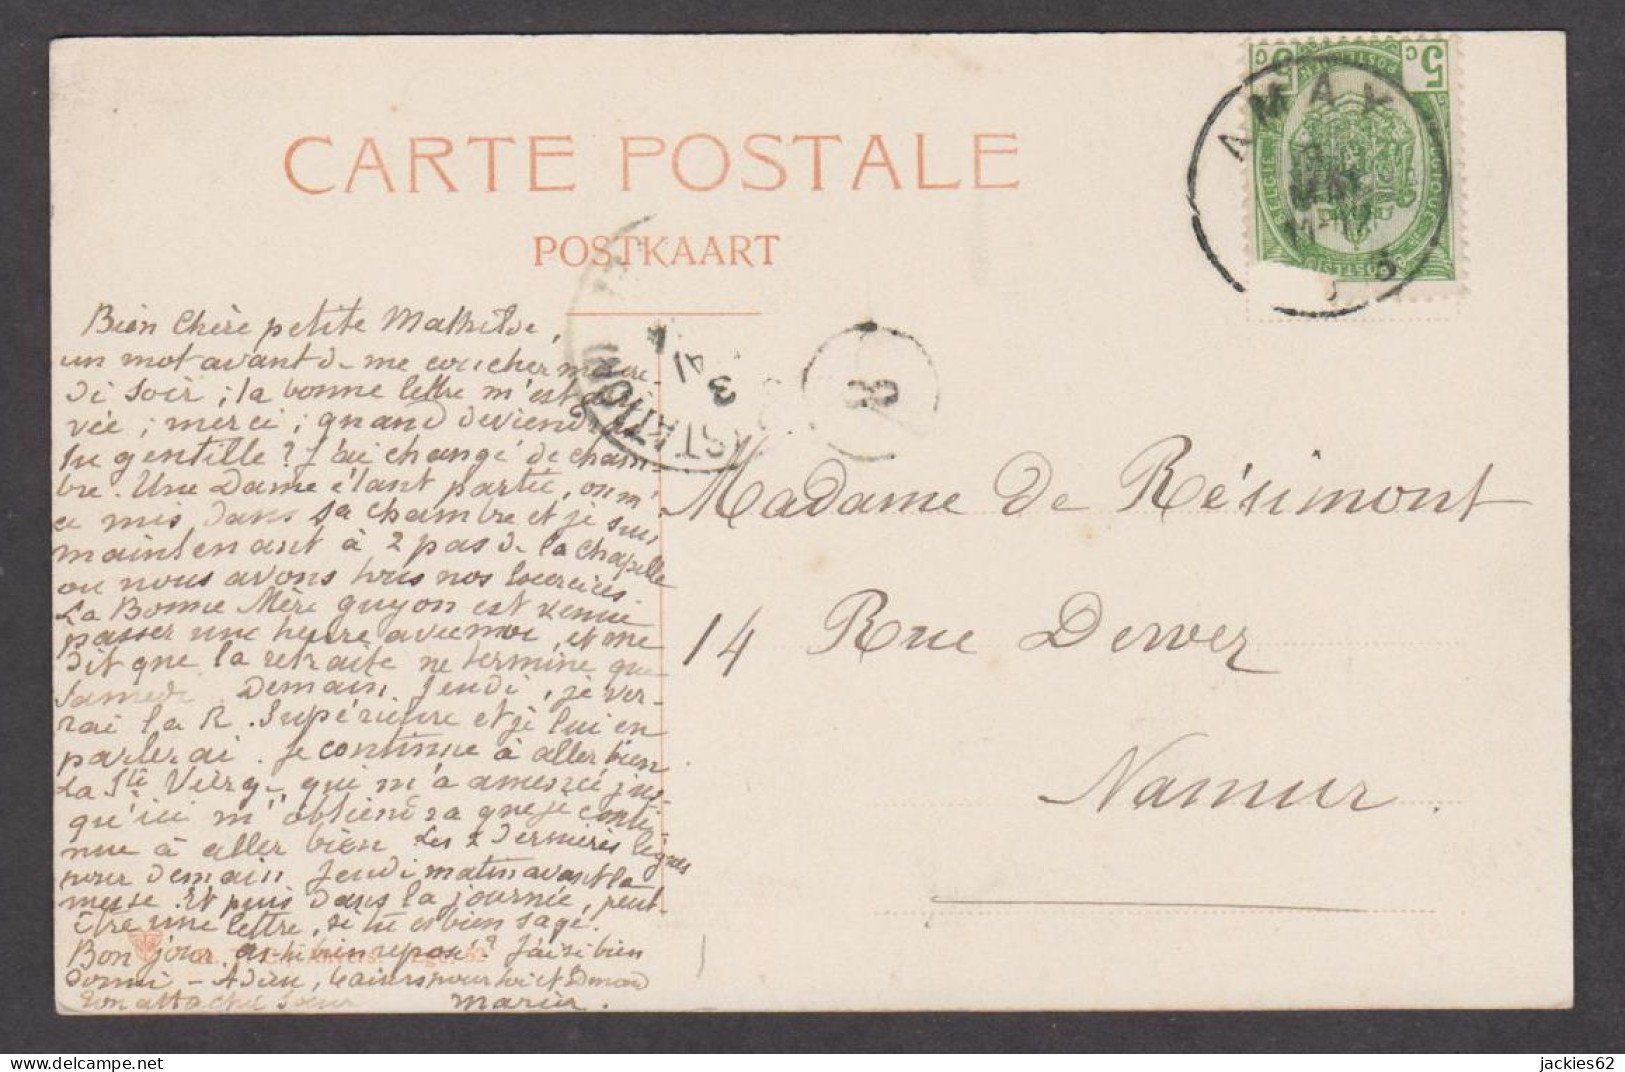 CARTE POSTALE
POSTKAART
AMAY
5 c 5 c
STATION
3
8
Bien Chère petite Mathilde,
un mot avant de me coucher mercre-
di soir ; la bonne lettre m'est arri-
vée ; merci ; quand deviendras
tu gentille ? J'ai changé de cham-
bre. Une Dame étant partie, on m'
a mis dans sa chambre et je suis
maintenant à 2 pas de la chapelle
ou nous avons tous nos exercices.
La Bonne Mère guyon est venue
passer une heure avec moi, et me
dit que la retraite ne termine que
Samedi Demain Jeudi, je ver-
rai la R. Supérieure et je lui en
parlerai. Je continue à aller bien.
La Ste Vierge qui m'a amenée jus-
qu'ici m'obtiendra que je conti-
nue à aller bien Les 2 dernières lignes
pour demain Jeudi matin avant la
messe. Et puis dans la journée, peut-
être une lettre, si tu es bien sage.
Bonjour, as-tu bien reposé ? J'ai si bien
dormi - Adieu, baisers pour toi et
Ton attachée Soeur Maria.
Madame de Résimont
14 Rue Dewez
Namur.
jackies62